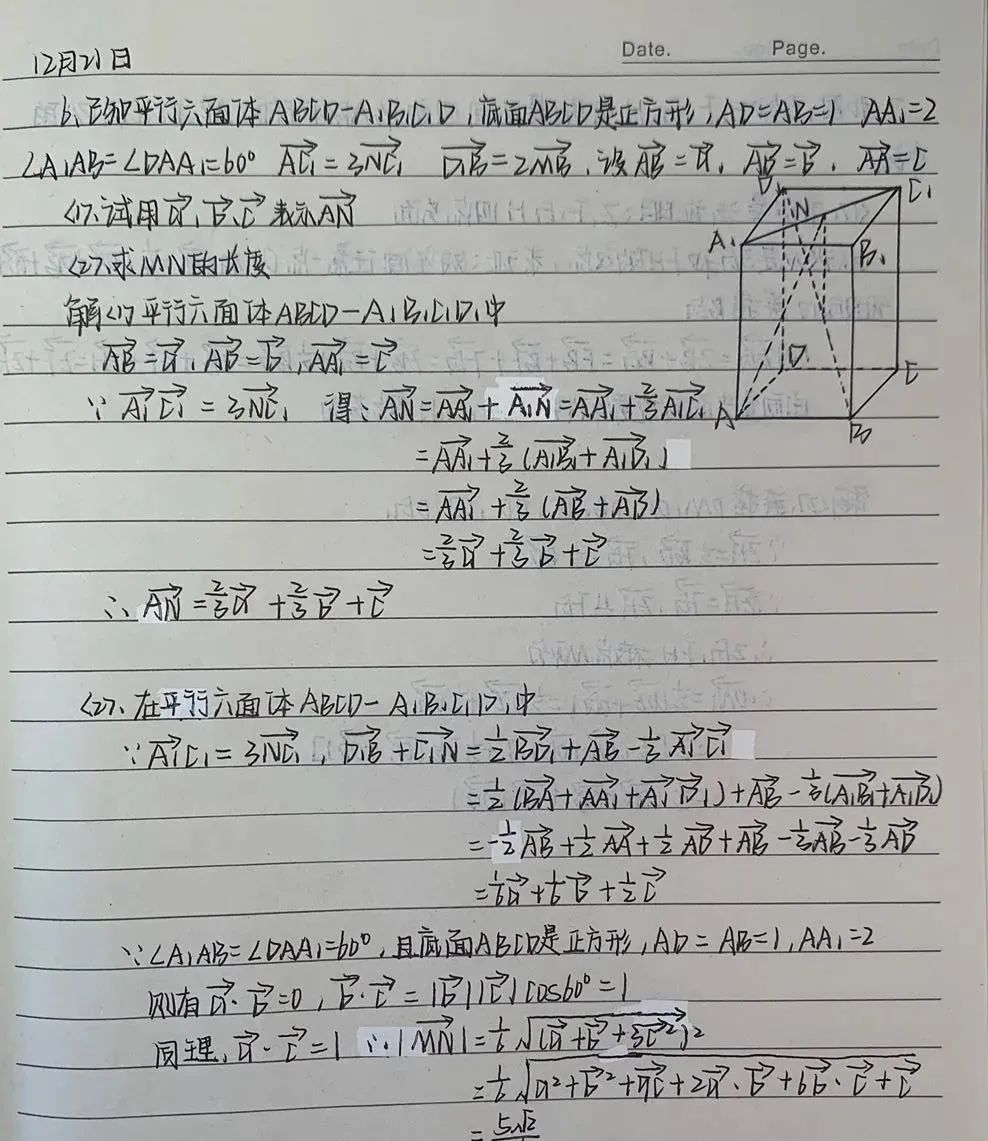 Date. Page.
12月21日
6、已知平行六面体ABCD-A₁B₁C₁D,底面ABCD是正方形,AD=AB=1 AA₁=2
∠A₁AB=∠DAA₁=60° \overrightarrow{AC₁}=3\overrightarrow{NC₁} \overrightarrow{D₁B}=2\overrightarrow{MB},设\overrightarrow{AB}=\overrightarrow{a},\overrightarrow{AB}=\overrightarrow{b},\overrightarrow{AA}=\overrightarrow{c}
<1>、试用\overrightarrow{a},\overrightarrow{b},\overrightarrow{c}表示\overrightarrow{AN}
<2>、求MN的长度
D₁ C₁ N A₁ B₁ D C A B
解<1>平行六面体ABCD-A₁B₁C₁D₁中
\overrightarrow{AB}=\overrightarrow{a},\overrightarrow{AD}=\overrightarrow{b},\overrightarrow{AA₁}=\overrightarrow{c}
∵\overrightarrow{A₁C₁}=3\overrightarrow{NC₁} 得:\overrightarrow{AN}=\overrightarrow{AA₁}+\overrightarrow{A₁N}=\overrightarrow{AA₁}+\frac{2}{3}\overrightarrow{A₁C₁}
=\overrightarrow{AA₁}+\frac{2}{3}(\overrightarrow{A₁B₁}+\overrightarrow{A₁D₁})
=\overrightarrow{AA₁}+\frac{2}{3}(\overrightarrow{AB}+\overrightarrow{AD})
=\frac{2}{3}\overrightarrow{a}+\frac{2}{3}\overrightarrow{b}+\overrightarrow{c}
∴\overrightarrow{AN}=\frac{2}{3}\overrightarrow{a}+\frac{2}{3}\overrightarrow{b}+\overrightarrow{c}
<2>、在平行六面体ABCD-A₁B₁C₁D₁中
∵\overrightarrow{A₁C₁}=3\overrightarrow{NC₁},\overrightarrow{D₁B}+\overrightarrow{C₁N}=\frac{1}{2}\overrightarrow{BD₁}+\overrightarrow{AB}-\frac{1}{3}\overrightarrow{A₁C₁}
=\frac{1}{2}(\overrightarrow{BA}+\overrightarrow{AA₁}+\overrightarrow{A₁D₁})+\overrightarrow{AB}-\frac{1}{3}(\overrightarrow{A₁B₁}+\overrightarrow{A₁D₁})
=-\frac{1}{2}\overrightarrow{AB}+\frac{1}{2}\overrightarrow{AA₁}+\frac{1}{2}\overrightarrow{AD}+\overrightarrow{AB}-\frac{1}{3}\overrightarrow{AB}-\frac{1}{3}\overrightarrow{AD}
=\frac{1}{6}\overrightarrow{a}+\frac{1}{6}\overrightarrow{b}+\frac{1}{2}\overrightarrow{c}
∵∠A₁AB=∠DAA₁=60°,且底面ABCD是正方形,AD=AB=1,AA₁=2
则有\overrightarrow{a}·\overrightarrow{b}=0,\overrightarrow{b}·\overrightarrow{c}=|\overrightarrow{b}||\overrightarrow{c}|cos60°=1
同理,\overrightarrow{a}·\overrightarrow{c}=1 ∴|\overrightarrow{MN}|=\frac{1}{6}\sqrt{(\overrightarrow{a}+\overrightarrow{b}+3\overrightarrow{c}²)²}
=\frac{1}{6}\sqrt{\overrightarrow{a}²+\overrightarrow{b}²+\overrightarrow{9c}+2\overrightarrow{a}·\overrightarrow{b}+6\overrightarrow{b}·\overrightarrow{c}+\overrightarrow{c}}
=5√2